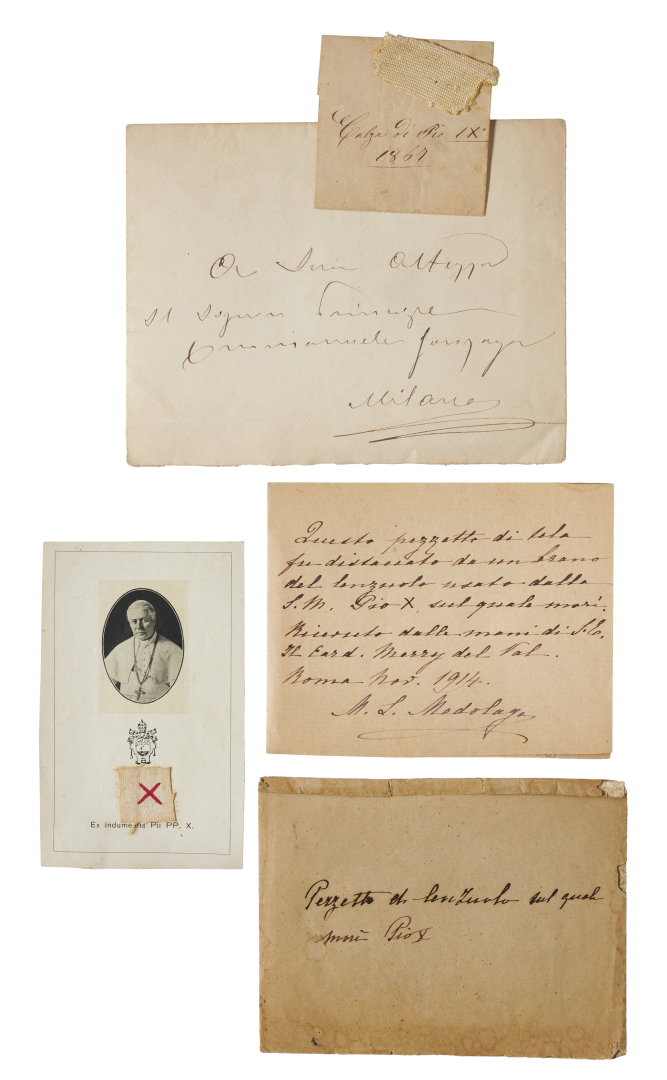 Calza di Pio IX°
1867
A Sua Altezza
Il Signor Principe
Emmanuele Gonzaga
Milano
Questo pezzetto di tela
fu distaccato da un brano
del lenzuolo usato dalla
S. M. Pio X, sul quale morì.
Ricevuto dalle mani di S. E.
Il Card. Merry del Val.
Roma Nov. 1914.
M. S. Medolago
X
Ex indumentis Pii PP. X.
Pezzetto di lenzuolo sul quale
morì Pio X